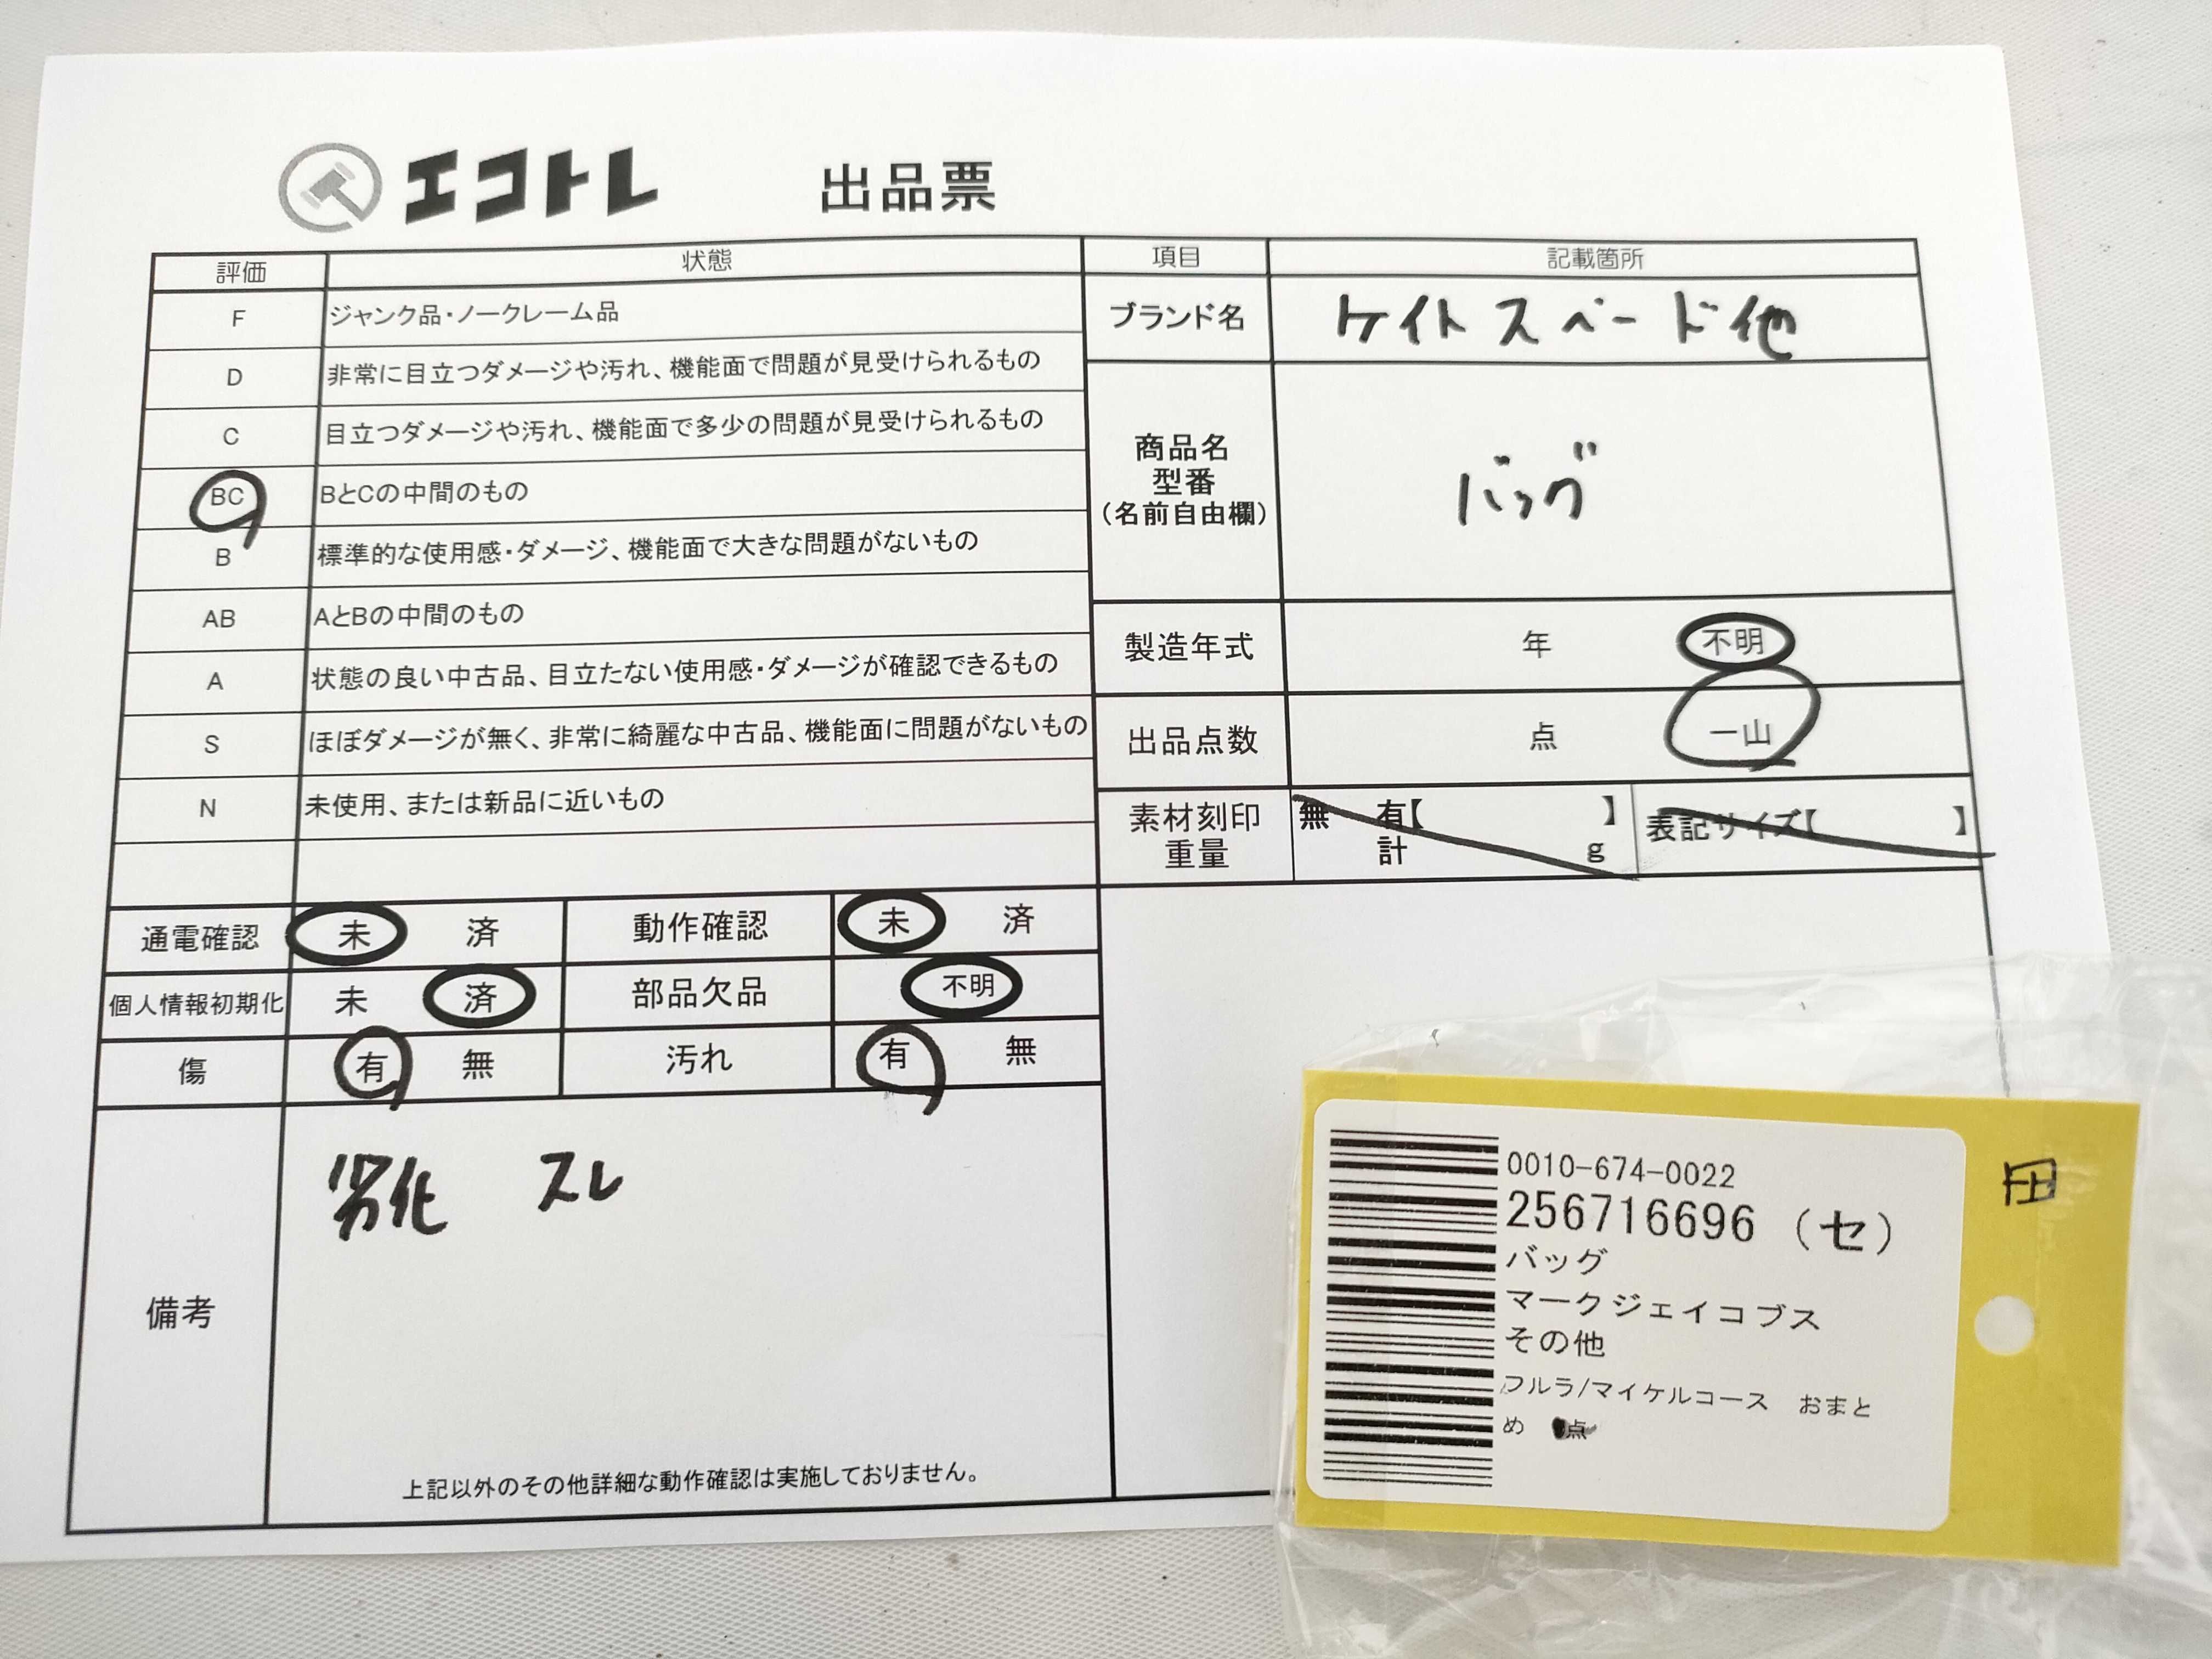 エコトレ 出品票
評価 状態 項目 記載箇所
F ジャンク品・ノークレーム品
D 非常に目立つダメージや汚れ、機能面で問題が見受けられるもの
C 目立つダメージや汚れ、機能面で多少の問題が見受けられるもの
BC BとCの中間のもの
B 標準的な使用感・ダメージ、機能面で大きな問題がないもの
AB AとBの中間のもの
A 状態の良い中古品、目立たない使用感・ダメージが確認できるもの
S ほぼダメージが無く、非常に綺麗な中古品、機能面に問題がないもの
N 未使用、または新品に近いもの
ブランド名 ケイトスペード他
商品名
型番
(名前自由欄)
バッグ
製造年式 年 不明
出品点数 点 一山
素材刻印
重量
無 有【 】
計 g
表記サイズ【 】
通電確認 未 済 動作確認 未 済
個人情報初期化 未 済 部品欠品 不明
傷 有 無 汚れ 有 無
備考
劣化 スレ
上記以外のその他詳細な動作確認は実施しておりません。
0010-674-0022
256716696 (セ)
バッグ
マークジェイコブス
その他
フルラ/マイケルコース おまと
め 点